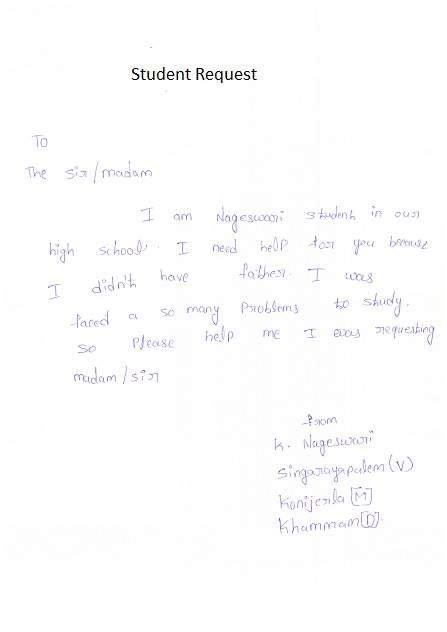 Student Request
To
The sir/madam
I am Nageswari student in our
high school. I need help for you because
I didn't have father. I was
faced a so many problems to study.
So please help me I was requesting
madam/sir
from
K. Nageswari
Singarayapalem (V)
Konijerla [M]
Khammam [D].